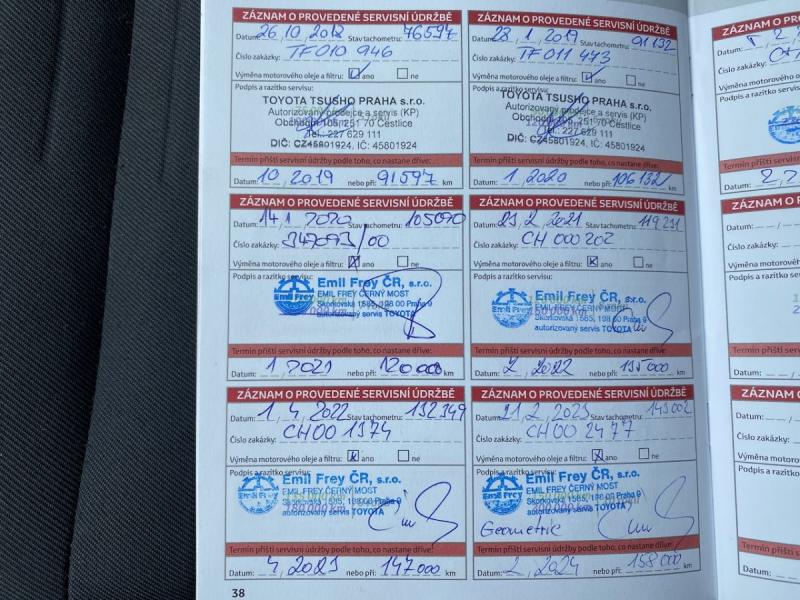 ZÁZNAM O PROVEDENÉ SERVISNÍ ÚDRŽBĚ
Datum: 26 10 2018 Stav tachometru: 76597
Číslo zakázky: TF010 946
Výměna motorového oleje a filtru: ano ne
Podpis a razítko servisu:
TOYOTA TSUSHO PRAHA s.r.o.
Autorizovaný prodejce a servis (KP)
Obchodní 105, 251 70 Čestlice
Tel.: 227 629 111
DIČ: CZ45801924, IČ: 45801924
Termín příští servisní údržby podle toho, co nastane dříve:
Datum: 10 2019 nebo při: 91597 km
ZÁZNAM O PROVEDENÉ SERVISNÍ ÚDRŽBĚ
Datum: 28 1 2019 Stav tachometru: 91132
Číslo zakázky: TF011 473
Výměna motorového oleje a filtru: ano ne
Podpis a razítko servisu:
TOYOTA TSUSHO PRAHA s.r.o.
Autorizovaný prodejce a servis (KP)
Obchodní 105, 251 70 Čestlice
Tel.: 227 629 111
DIČ: CZ45801924, IČ: 45801924
Termín příští servisní údržby podle toho, co nastane dříve:
Datum: 1 2020 nebo při: 106132 km
ZÁZNAM O PROVEDENÉ SERVISNÍ ÚDRŽBĚ
Datum: 14 1 2020 Stav tachometru: 105090
Číslo zakázky: 347093/00
Výměna motorového oleje a filtru: ano ne
Podpis a razítko servisu:
Emil Frey
Emil Frey ČR, s.r.o.
EMIL FREY ČERNÝ MOST
Skorkovská 1585, 198 00 Praha 9
autorizovaný servis TOYOTA
Termín příští servisní údržby podle toho, co nastane dříve:
Datum: 1 2021 nebo při: 120000 km
ZÁZNAM O PROVEDENÉ SERVISNÍ ÚDRŽBĚ
Datum: 23 2 2021 Stav tachometru: 119231
Číslo zakázky: CH 000 202
Výměna motorového oleje a filtru: ano ne
Podpis a razítko servisu:
Emil Frey
Emil Frey ČR, s.r.o.
EMIL FREY ČERNÝ MOST
Skorkovská 1585, 198 00 Praha 9
autorizovaný servis TOYOTA
Termín příští servisní údržby podle toho, co nastane dříve:
Datum: 2 2022 nebo při: 135000 km
ZÁZNAM O PROVEDENÉ SERVISNÍ ÚDRŽBĚ
Datum: 1 4 2022 Stav tachometru: 132349
Číslo zakázky: CH00 1374
Výměna motorového oleje a filtru: ano ne
Podpis a razítko servisu:
Emil Frey
Emil Frey ČR, s.r.o.
EMIL FREY ČERNÝ MOST
Skorkovská 1585, 198 00 Praha 9
180 000 km
autorizovaný servis TOYOTA
Termín příští servisní údržby podle toho, co nastane dříve:
Datum: 4 2023 nebo při: 147000 km
ZÁZNAM O PROVEDENÉ SERVISNÍ ÚDRŽBĚ
Datum: 21 2 2023 Stav tachometru: 143002
Číslo zakázky: CH00 2477
Výměna motorového oleje a filtru: ano ne
Podpis a razítko servisu:
Emil Frey
Emil Frey ČR, s.r.o.
EMIL FREY ČERNÝ MOST
Skorkovská 1585, 198 00 Praha 9
autorizovaný servis TOYOTA
Geometrie
Termín příští servisní údržby podle toho, co nastane dříve:
Datum: 2 2024 nebo při: 158000 km
38